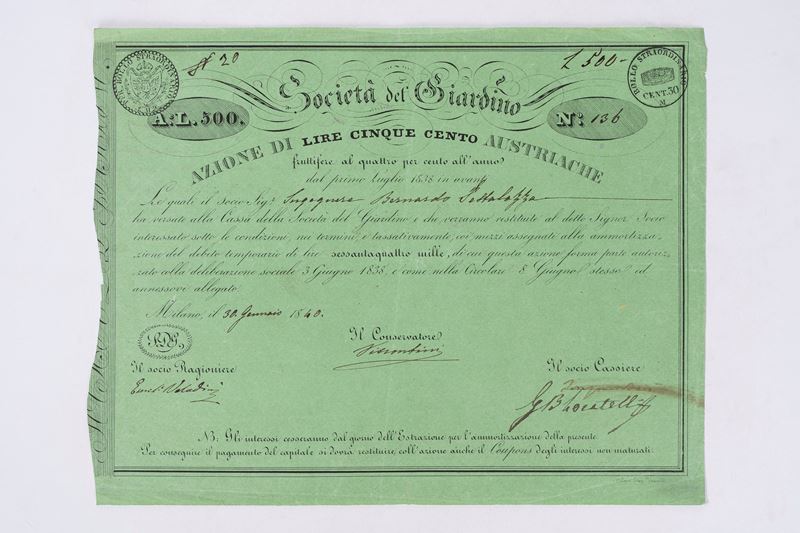 BOLLO STRAORDINARIO
N 20
L 500-
BOLLO STRAORDINARIO
CENT. 50
M
Società del Giardino
A: L. 500.
N: 136
AZIONE DI LIRE CINQUE CENTO AUSTRIACHE
fruttifere al quattro per cento all'anno
dal primo Luglio 1838 in avanti
Le quali il socio Sig.r Ingegnere Bernardo Pestalozza
ha versate alla Cassa della Società del Giardino e che verranno restituite al detto Signor Socio
interessato sotto le condizioni, nei termini, e tassativamente, coi mezzi assegnati alla ammortizza-
zione del debito temporario di lire sessantaquattro mille, di cui questa azione forma parte autoriz-
zato colla deliberazione sociale 3 Giugno 1838, e come nella Circolare 8 Giugno stesso ed
annessovi allegato.
Milano, il 30. Gennaio 1840.
S.D.G.
Il Conservatore
Il socio Ragioniere
Il socio Cassiere
GB Locatelli
NB: Gli interessi cesseranno dal giorno dell'Estrazione per l'ammortizzazione della presente
Per conseguire il pagamento del capitale si dovrà restituire, coll'azione anche il Coupons degli interessi non maturati.